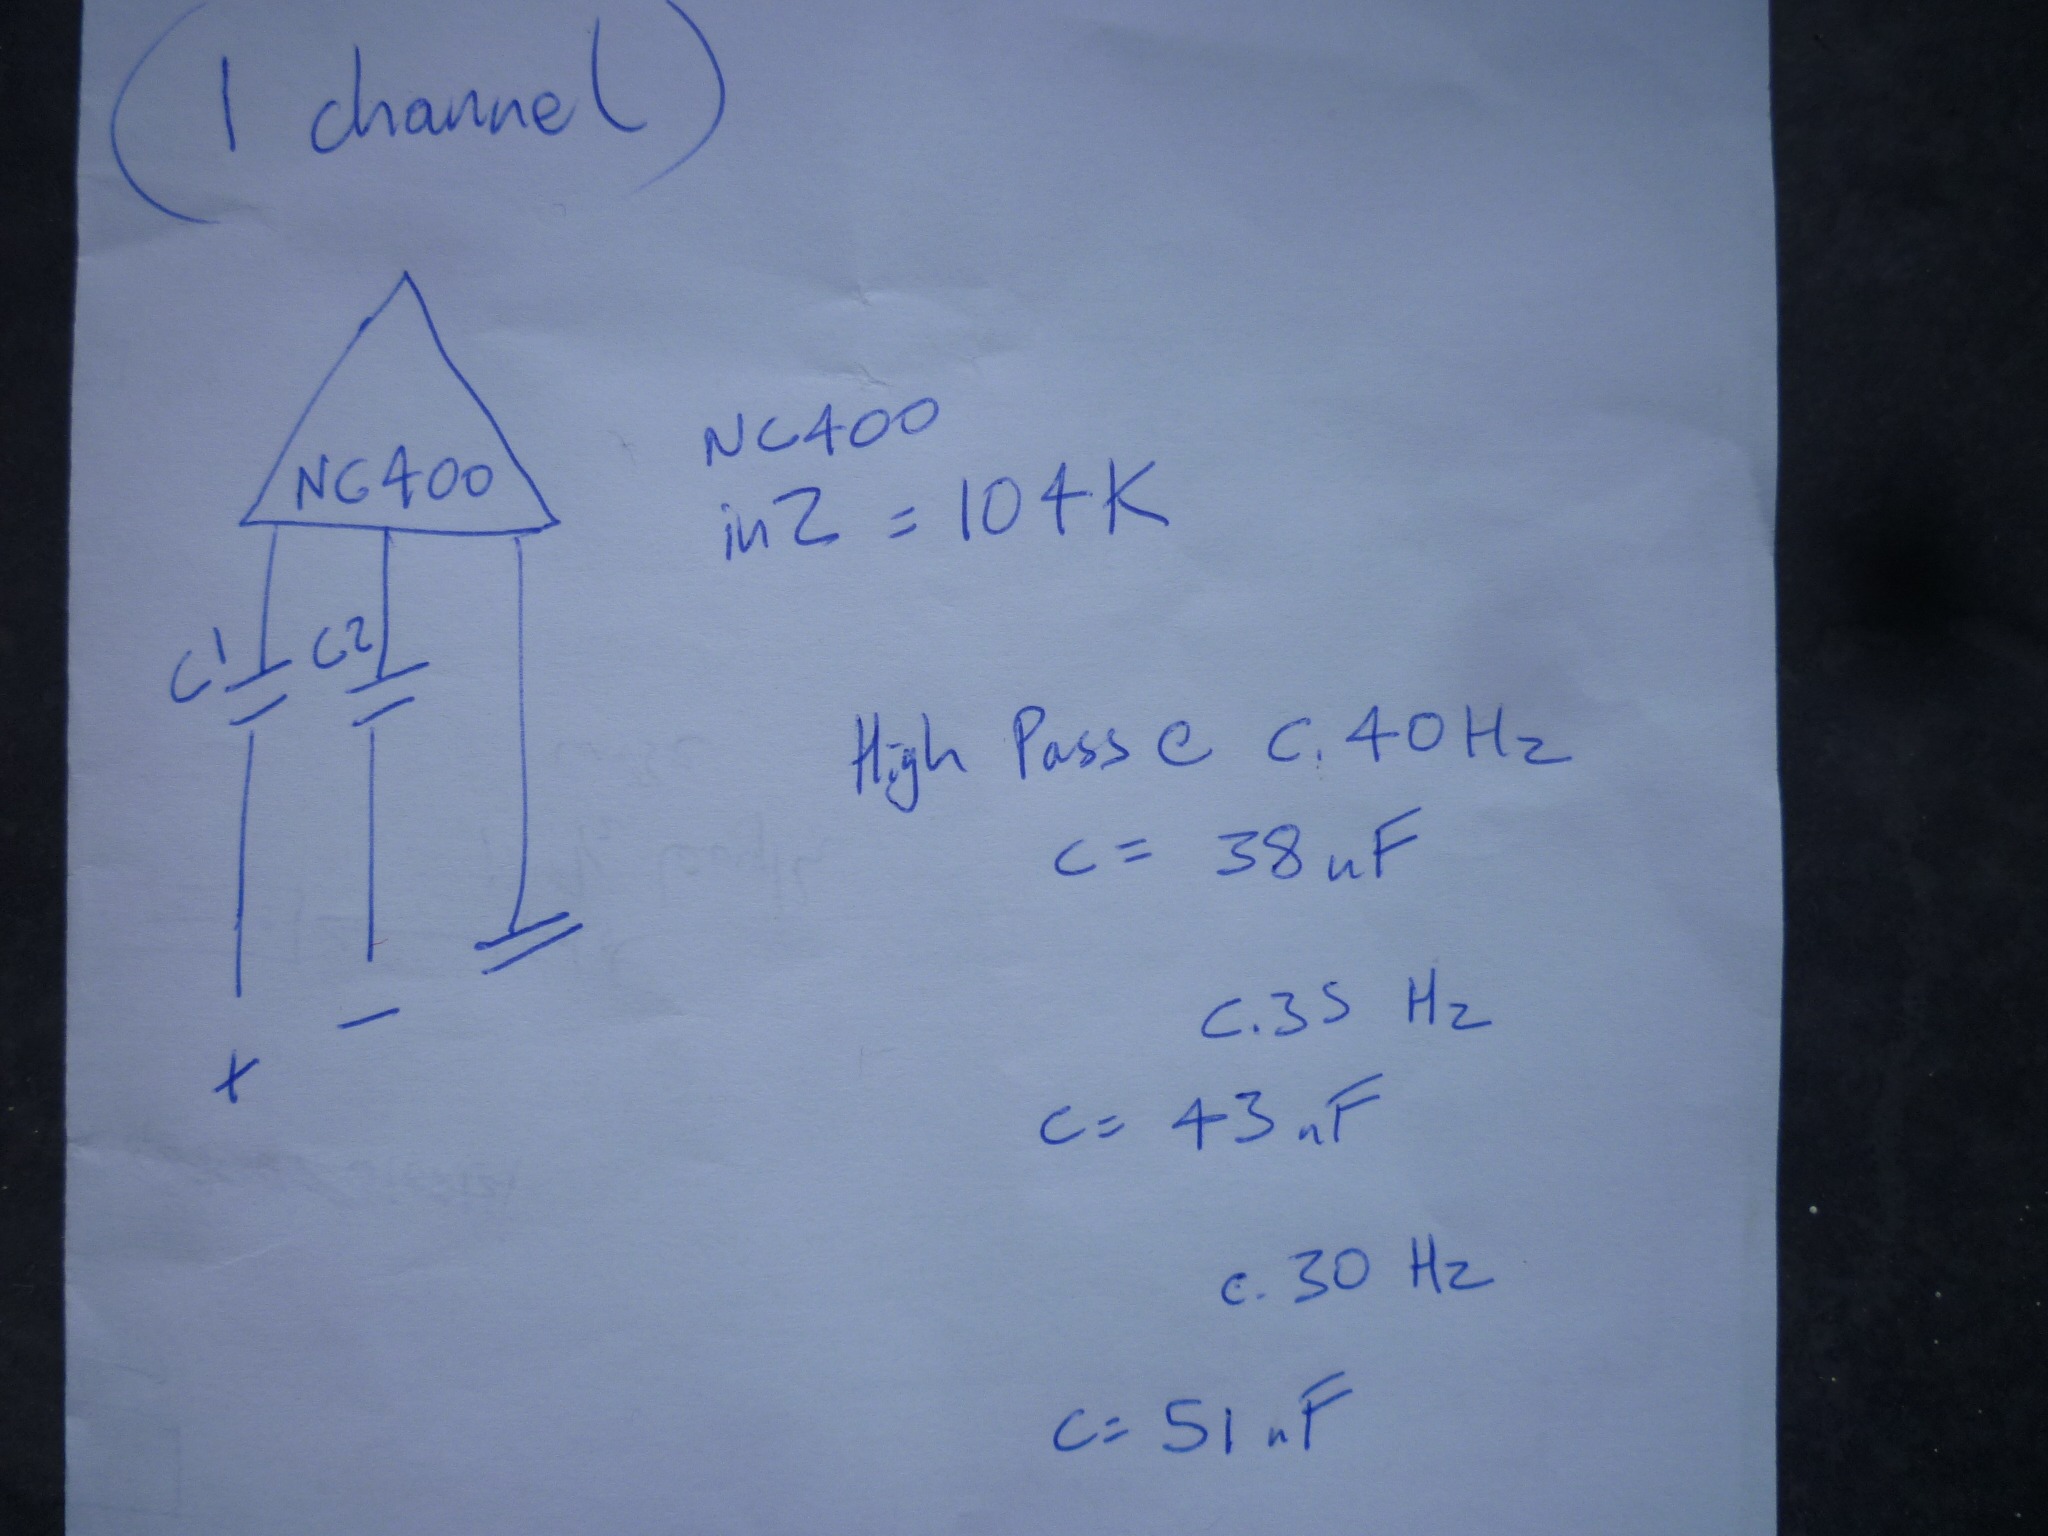 (1 channel)
NC400
NC400
inZ = 104K
C1 C2
High Pass @ c.40Hz
C= 38nF
c.35 Hz
+ –
C= 43nF
c.30 Hz
C= 51nF